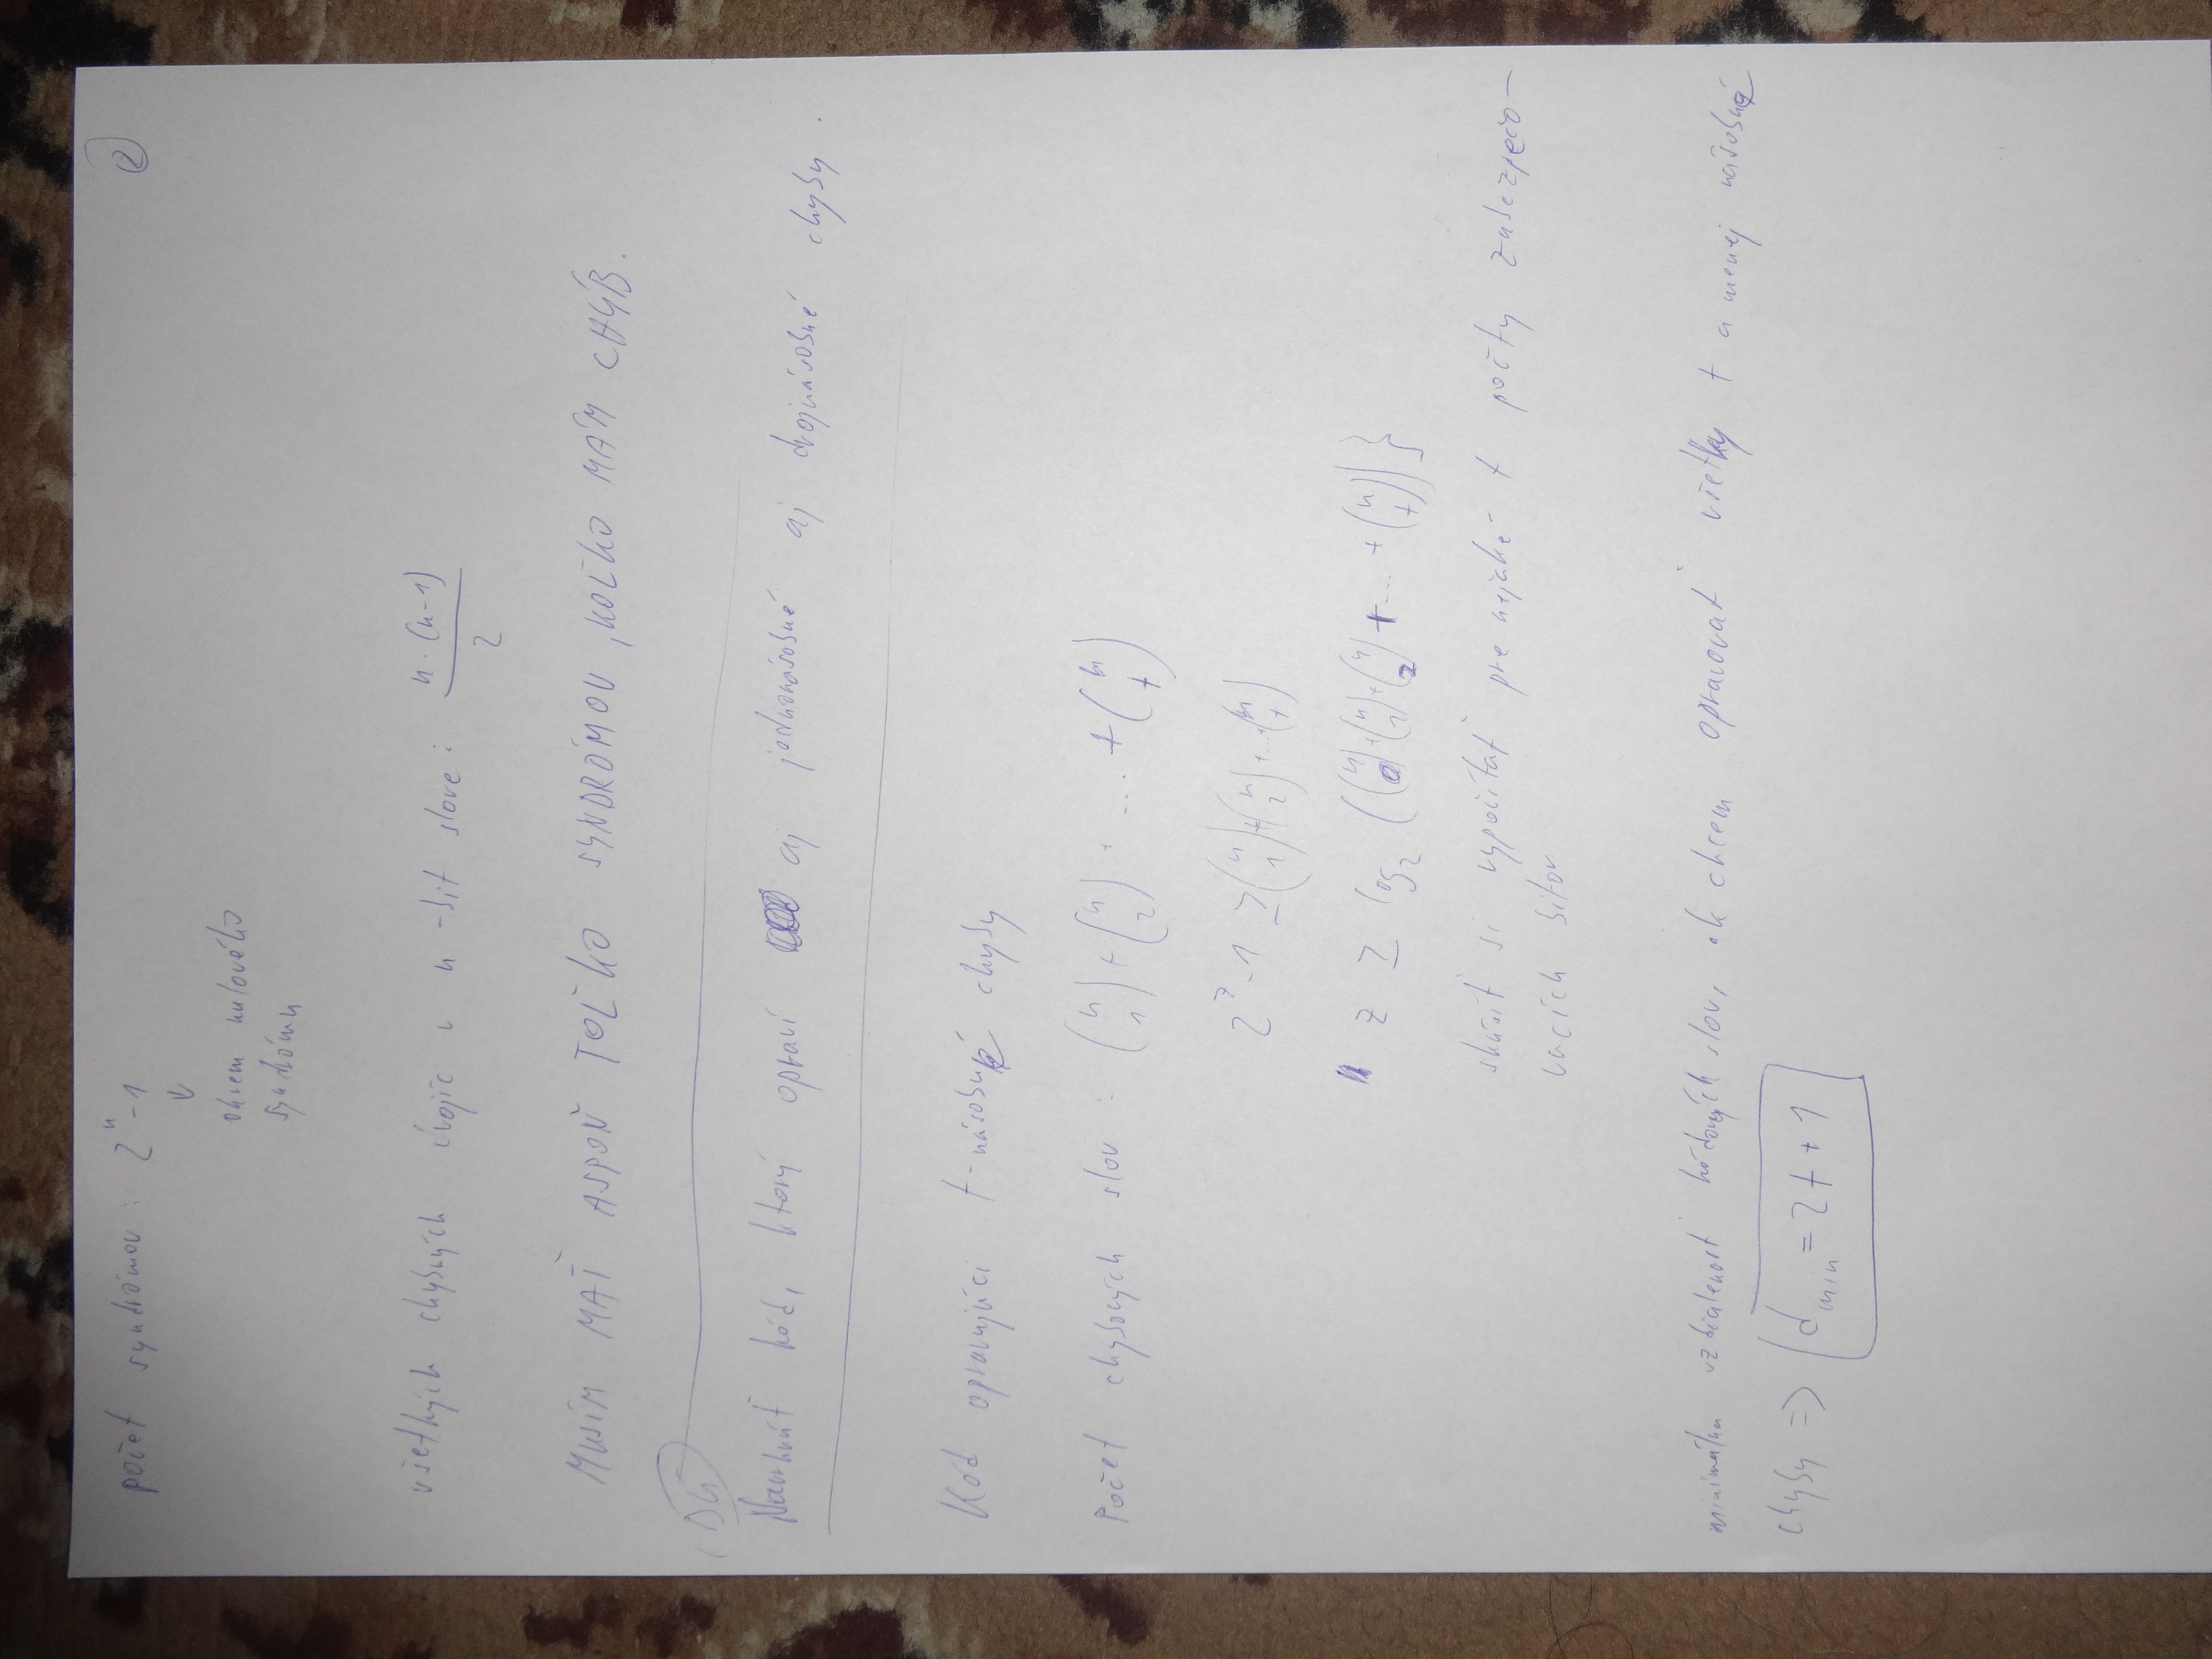 počet syndrómov : 2^n - 1
②
↓
okrem nulového
syndrómu
všetkých chybných dvojíc v n -bit slove : n · (n-1) / 2
MUSÍM MAŤ ASPOŇ TOĽKO SYNDRÓMOV, KOĽKO MÁM CHÝB.
DÚ
Navrhnúť kód, ktorý opraví aj jednonásobné aj dvojnásobné chyby.
Kód opravujúci t-násobné chyby
Počet chybových slov : (n 1) + (n 2) + ... + (n t)
2^z - 1 ≥ (n 1) + (n 2) + ... + (n t)
z ≥ log_2 ((n 0) + (n 1) + (n 2) + ... + (n t)) }
skúsiť si vypočítať pre nejaké t počty zabezpečo-
vacích bitov
minimálna vzdialenosť kódových slov, ak chcem opravovať všetky t a menej násobné
chyby => d_min = 2t + 1